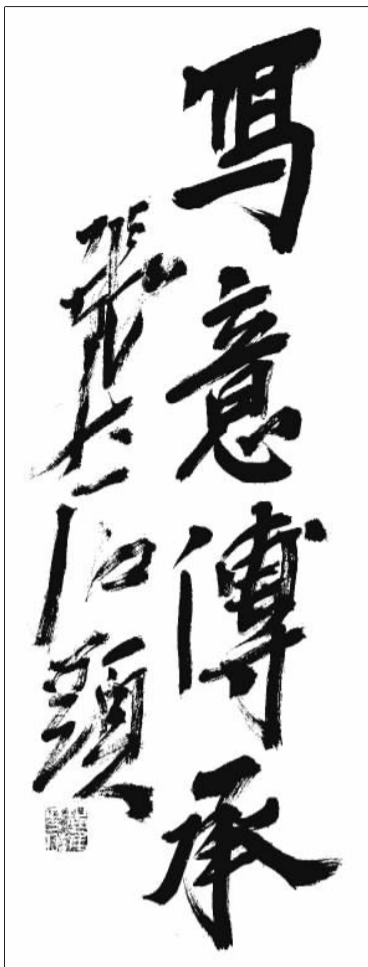 寫意傳承
張大石頭